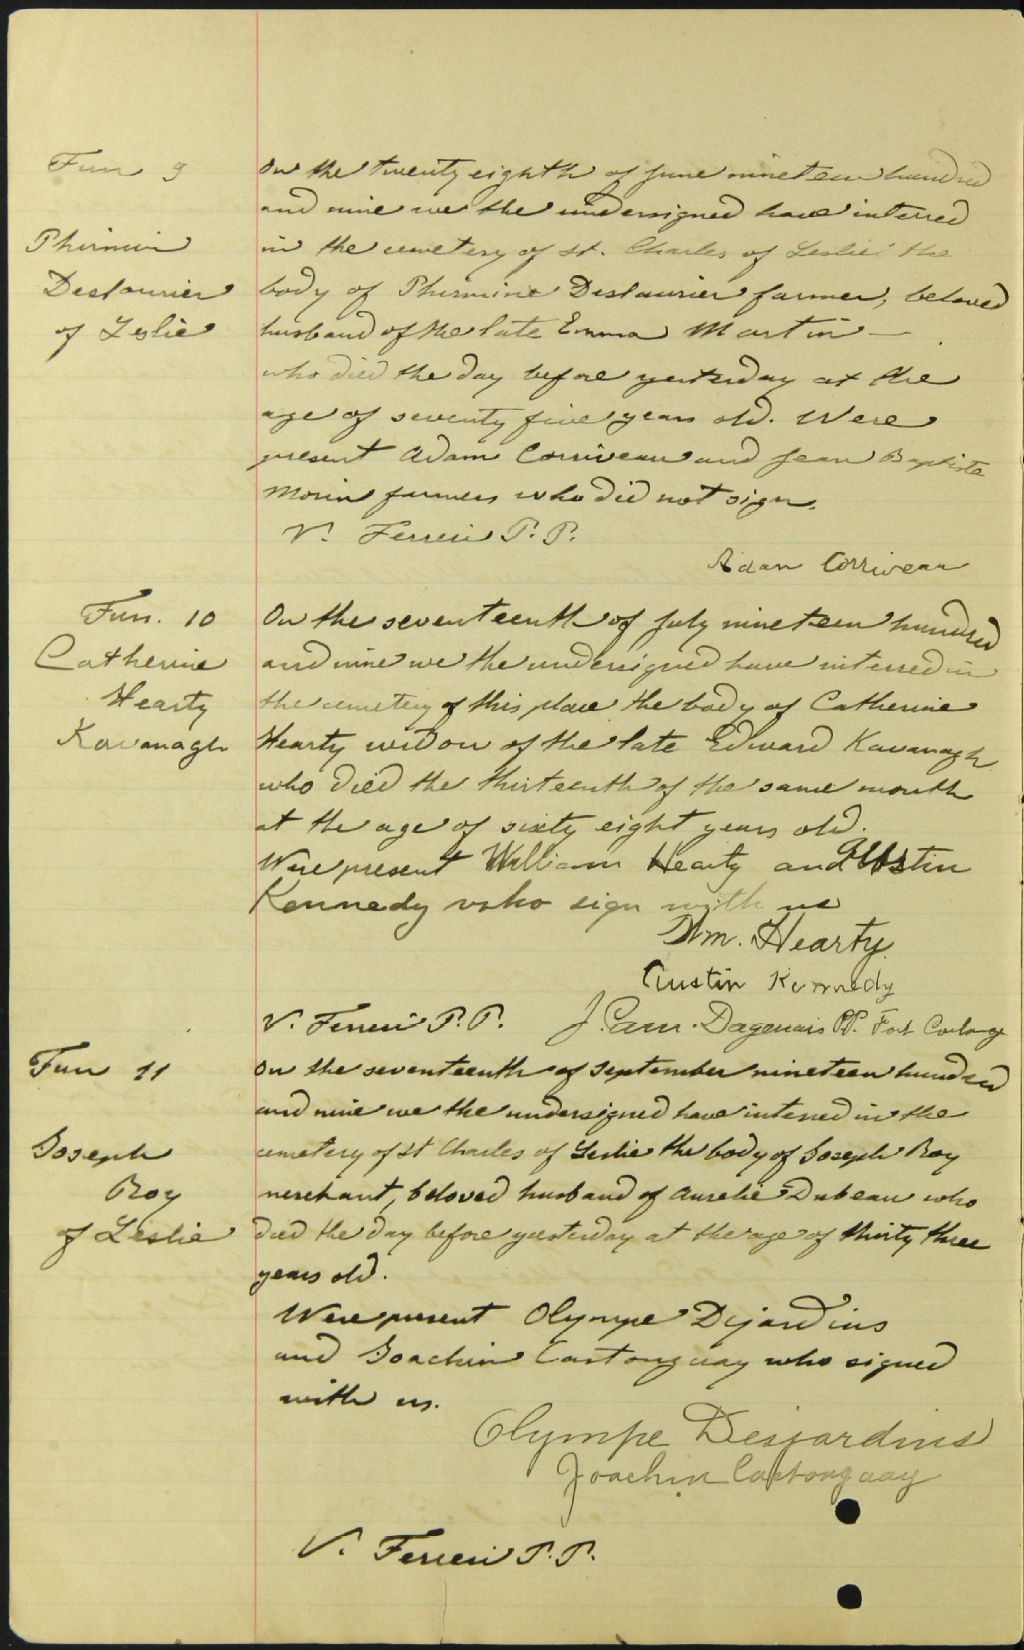 Fun 9
Phirmin
Deslaurier
of Leslie
On the twenty eighth of June nineteen hundred
and nine we the undersigned have interred
in the cemetery of St. Charles of Leslie the
body of Phirmine Deslaurier farmer, beloved
husband of the late Emma Martin —
who died the day before yesterday at the
age of seventy five years old. Were
present Adam Corriveau and Jean Baptiste
Morin farmers who did not sign.
V. Ferreri P.P.
Adan Corriveau
Fun. 10
Catherine
Hearty
Kavanagh
On the seventeenth of July nineteen hundred
and nine we the undersigned have interred in
the cemetery of this place the body of Catherine
Hearty widow of the late Edward Kavanagh
who died the thirteenth of the same month
at the age of sixty eight years old.
Were present William Hearty and Austin
Kennedy who sign with us
Wm. Hearty.
Austin Kennedy
V. Ferreri P.P. J. Cam. Dagenais P.P. Fort Coulonge
Fun 11
Joseph
Roy
of Leslie
On the seventeenth of September nineteen hundred
and nine we the undersigned have interred in the
cemetery of St Charles of Leslie the body of Joseph Roy
merchant, beloved husband of Aurelie Dubeau who
died the day before yesterday at the age of thirty three
years old.
Were present Olympe Dejardins
and Joachin Castonguay who signed
with us.
Olympe Desjardins
Joachin Castonguay
V. Ferreri P.P.